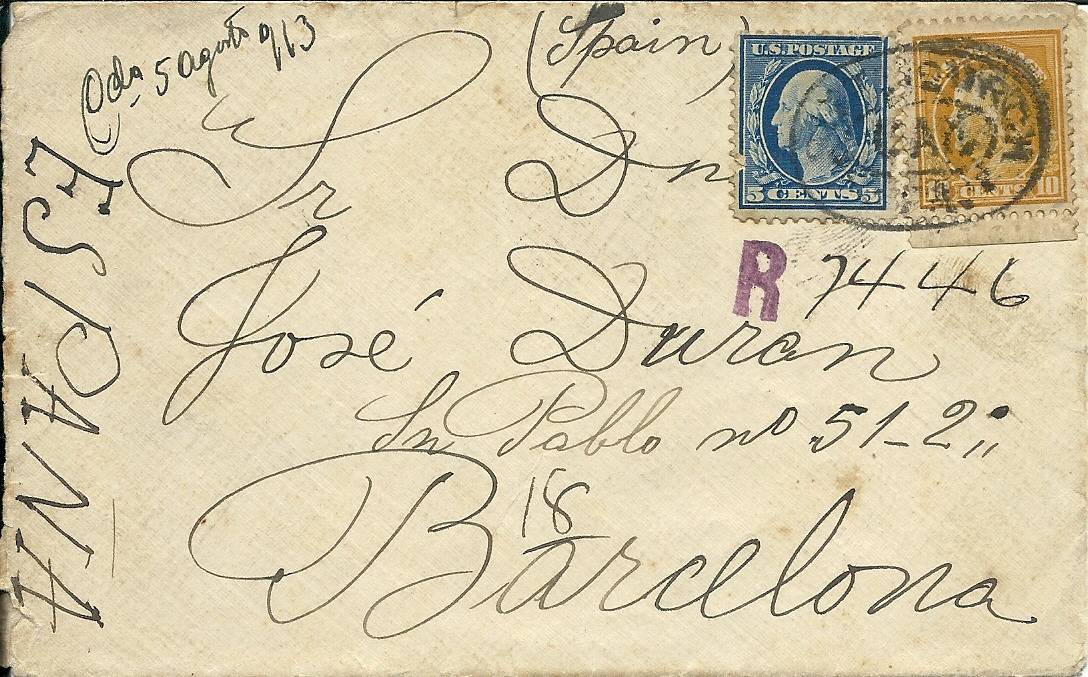 Oda 5 agosto 913
(Spain)
U.S. POSTAGE
5 CENTS 5
CENTS 10
Sr Dn
R 7446
José Duran
Sn Pablo nº 51-2º
18
Barcelona
ESPANA